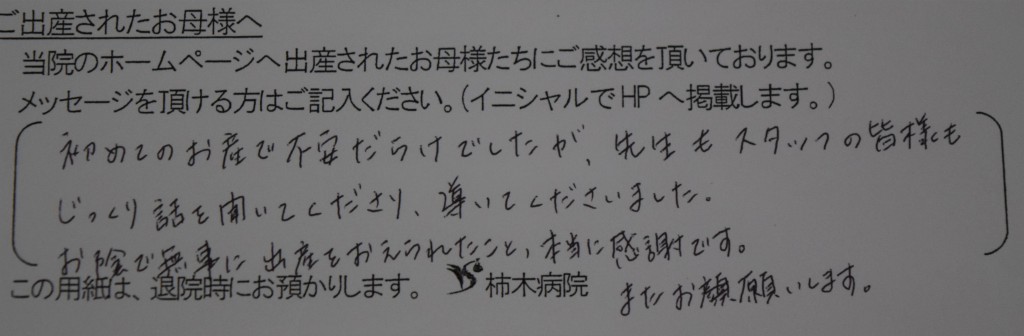 ご出産されたお母様へ
当院のホームページへ出産されたお母様たちにご感想を頂いております。
メッセージを頂ける方はご記入ください。(イニシャルでHPへ掲載します。)
初めてのお産で不安だらけでしたが、先生もスタッフの皆様も
じっくり話を聞いてくださり、導いてくださいました。
お陰で無事に出産をおえられたこと、本当に感謝です。
またお願いします。
この用紙は、退院時にお預かりします。 柿木病院